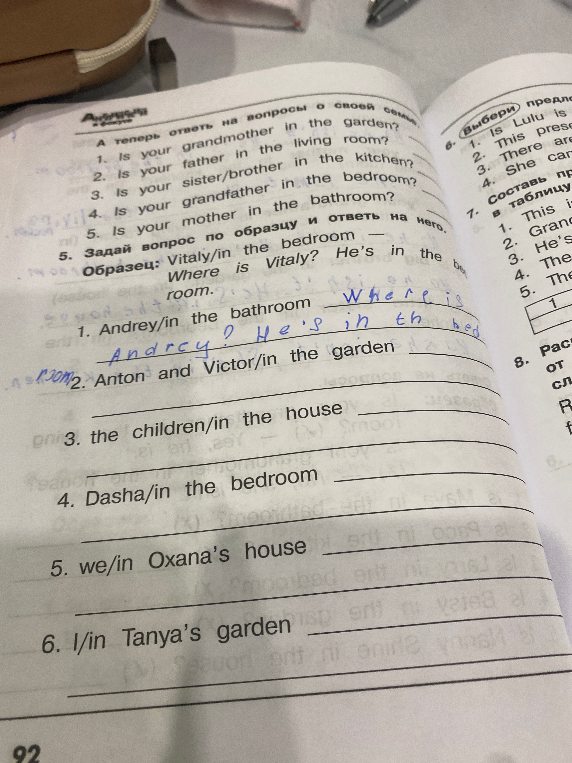 А теперь ответь на вопросы о своей семье.
1. Is your grandmother in the garden?
2. Is your father in the living room?
3. Is your sister/brother in the kitchen?
4. Is your grandfather in the bedroom?
5. Is your mother in the bathroom?
5. Задай вопрос по образцу и ответь на него.
Образец: Vitaly/in the bedroom —
Where is Vitaly? He's in the
room.
1. Andrey/in the bathroom Where is
Andrey? He's in th bed
room.
2. Anton and Victor/in the garden
3. the children/in the house
4. Dasha/in the bedroom
5. we/in Oxana's house
6. I/in Tanya's garden
92
6. Выбери
1. Is Lulu is
2. This
3. There
4. She
7. Составь
в таблицу
1. This
2.
3. He's
4. The
5.
1
8.
от